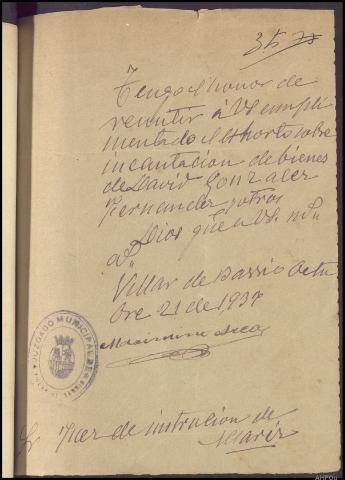 35
Tengo el honor de
remitir á VS cumpli
mentado el exhorto sobre
incautacion de bienes
de David Gonzalez
Fernandez y otros
Dios gue a VS. m
a
Villar de Barrio Octu
bre 21 de 1937
JUZGADO MUNICIPAL DE
Sr Juez de instrucion de
Allariz
AHPOu